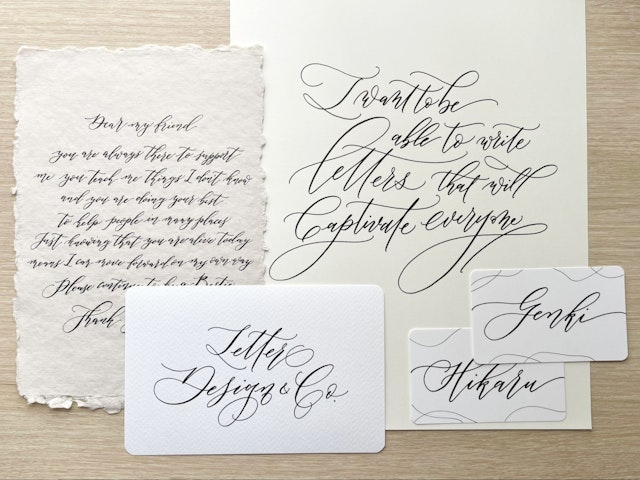 Dear my friend
you are always there to support
me you teach me things I don't know
and you are doing your best
to help people in many places
Just knowing that you are alive today
means I can move forward on my own way
Please continue to be a
Thank
I want to be
able to write
letters that will
Captivate everyone
Letter
Design & Co.
Genki
Hikaru